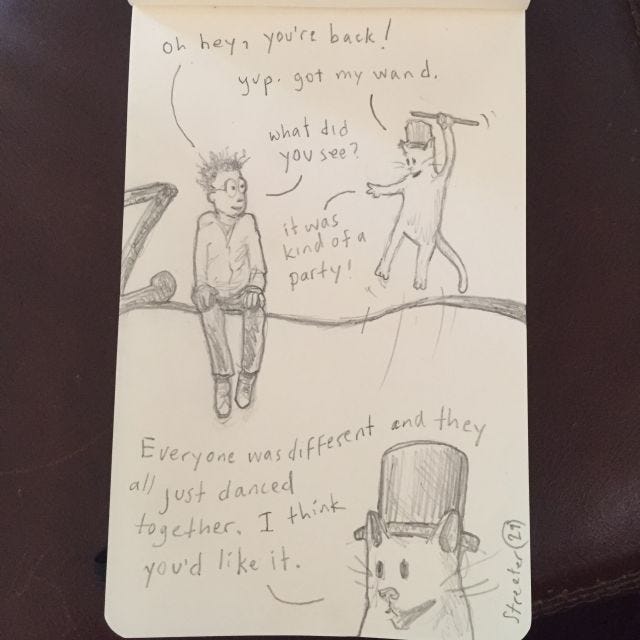 oh hey, you're back!
yup. got my wand.
what did
you see?
it was
kind of a
party!
Everyone was different and they
all just danced
together. I think
you'd like it.
Streeter 29